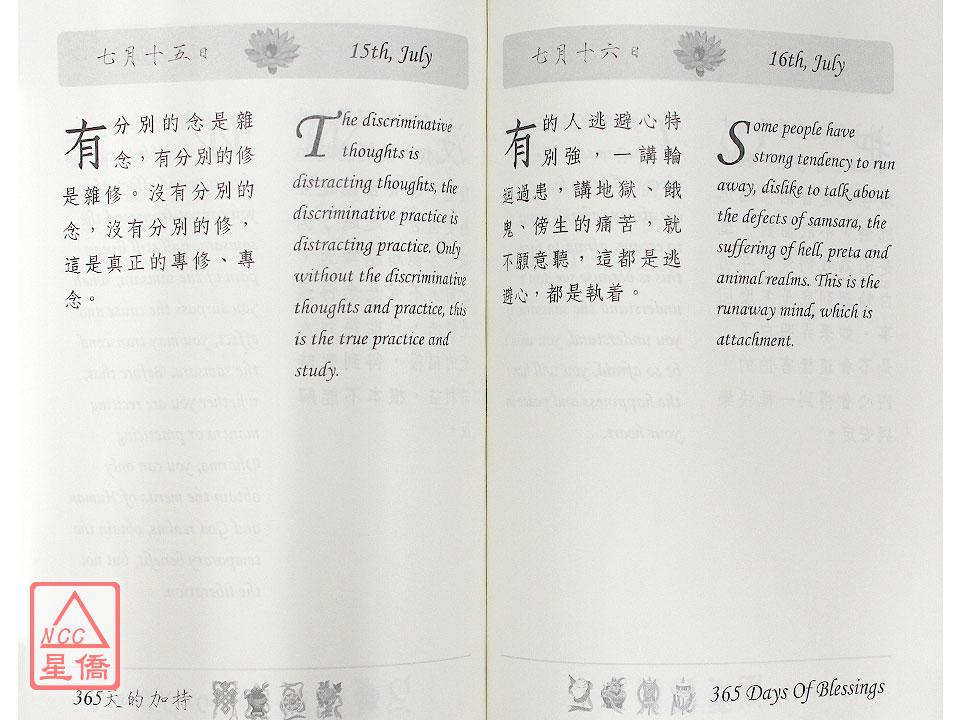 七月十五日
15th, July
有分別的念是雜
念，有分別的修
是雜修。沒有分別的
念，沒有分別的修，
這是真正的專修、專
念。
The discriminative
thoughts is
distracting thoughts, the
discriminative practice is
distracting practice. Only
without the discriminative
thoughts and practice, this
is the true practice and
study.
365天的加持
七月十六日
16th, July
有的人逃避心特
別強，一講輪
迴過患，講地獄、餓
鬼、傍生的痛苦，就
不願意聽，這都是逃
避心，都是執着。
Some people have
strong tendency to run
away, dislike to talk about
the defects of samsara, the
suffering of hell, preta and
animal realms. This is the
runaway mind, which is
attachment.
365 Days Of Blessings
NCC
星僑